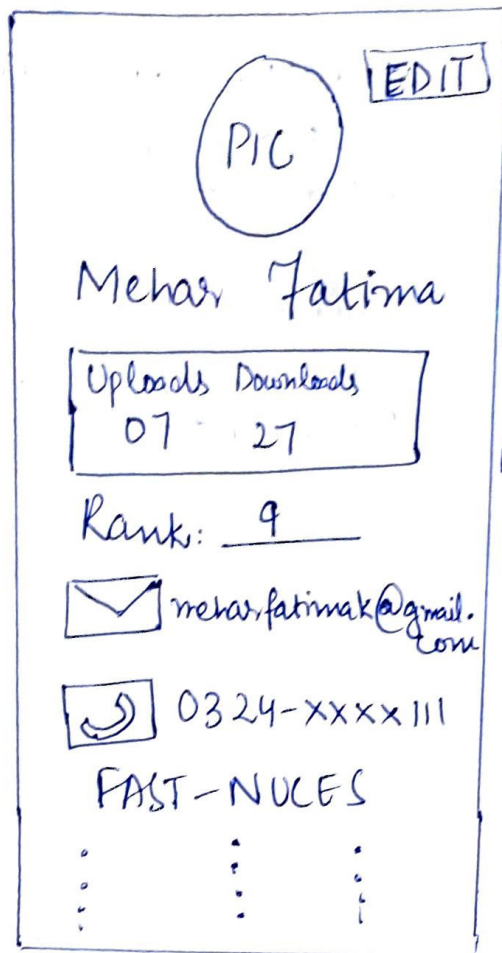 EDIT
PIC
Mehar Fatima
Uploads Downloads
07 27
Rank: 9
meharfatimak@gmail.
com
0324-xxxx111
FAST-NUCES